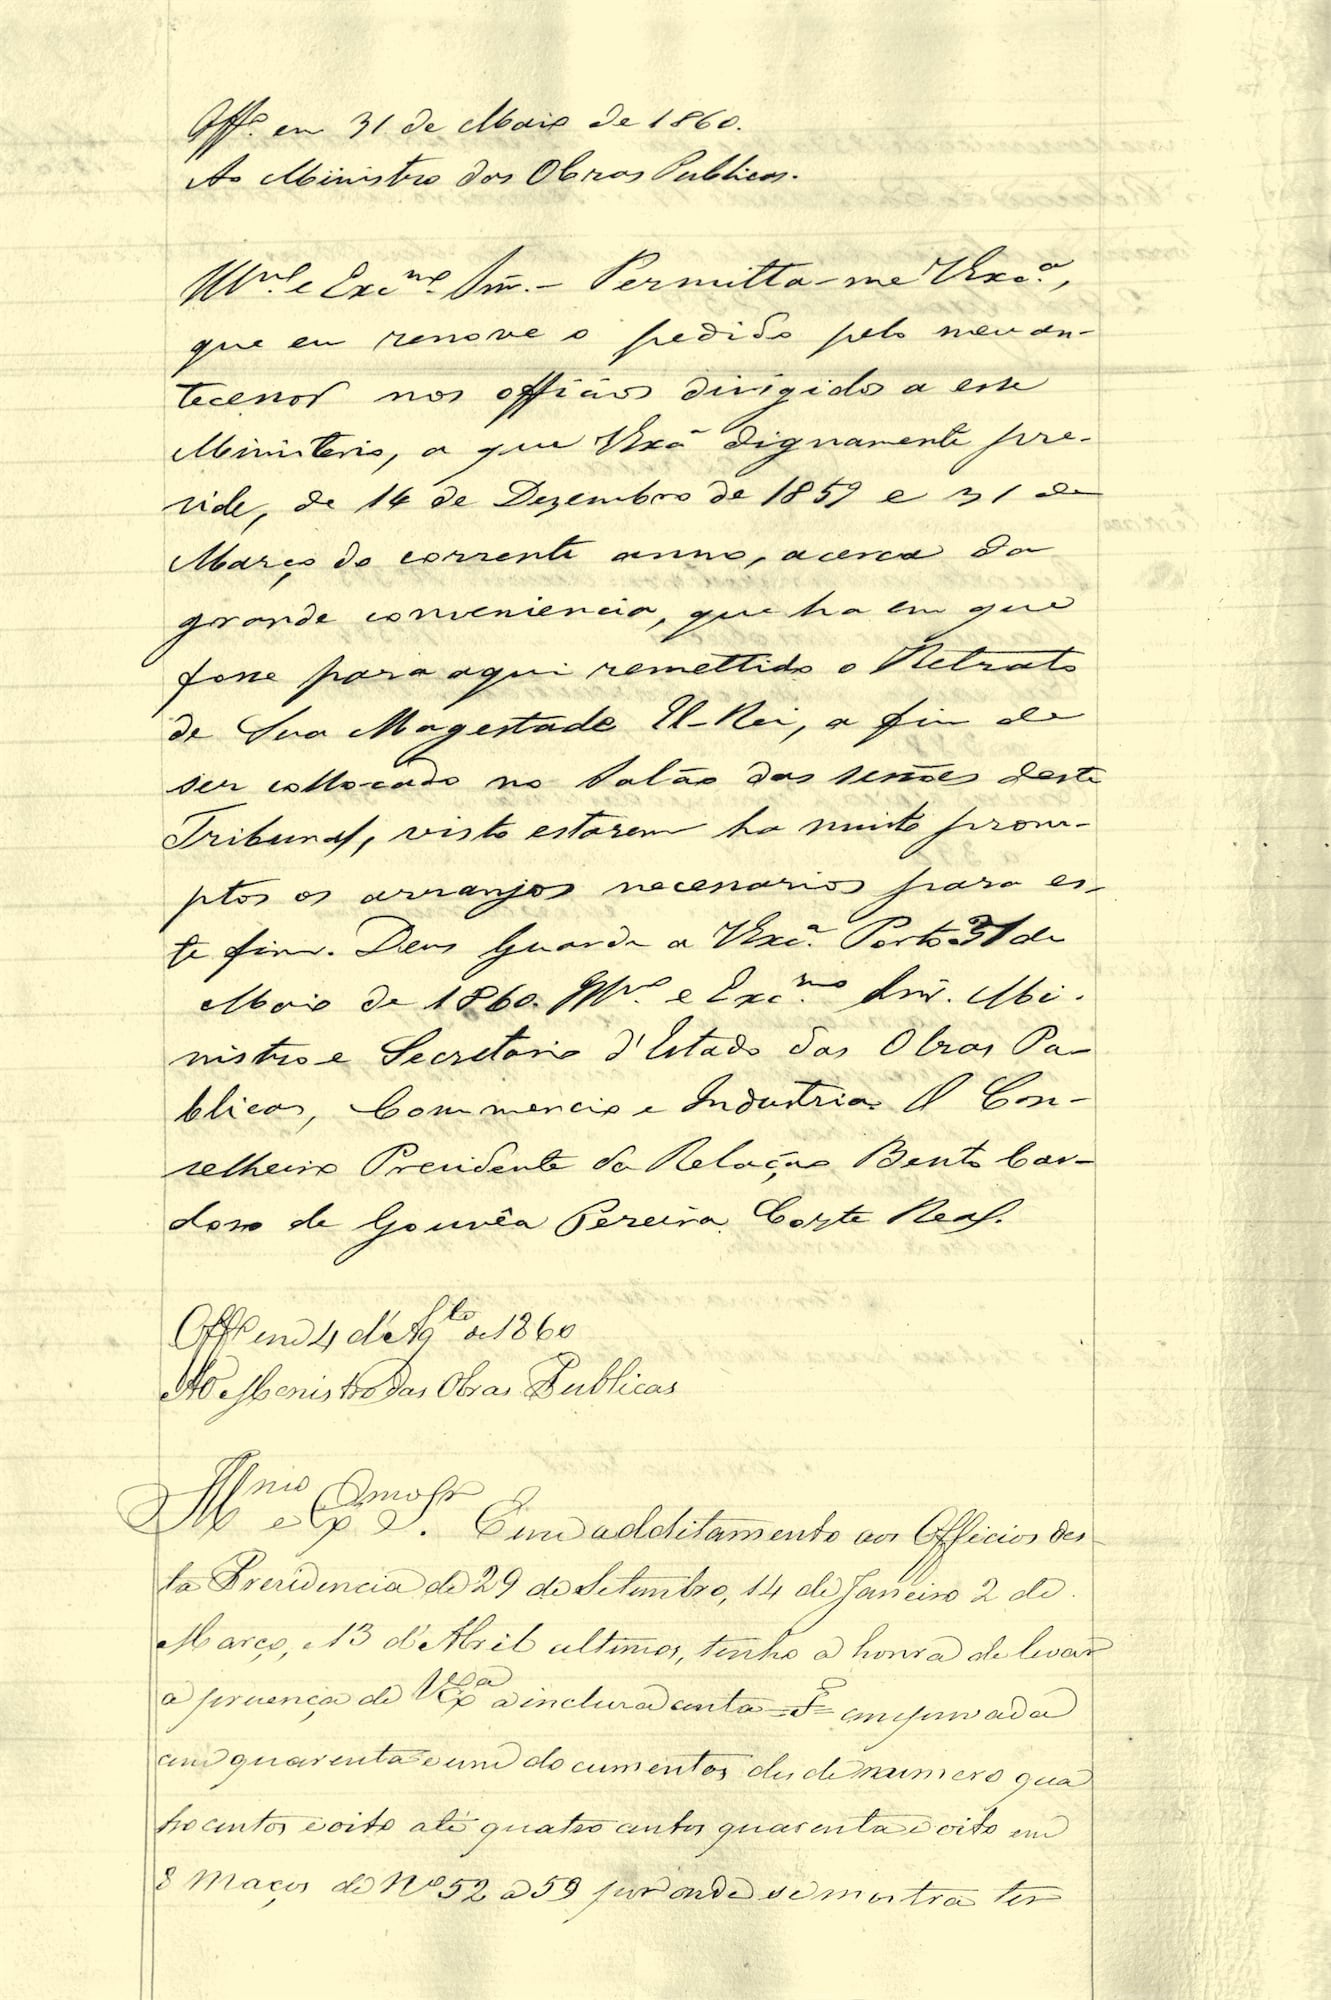 Offº. em 31 de Maio de 1860.
Ao Ministro das Obras Publicas.
Illmº. e Excmº. Snr. - Permitta-me VExcª,
que eu renove o pedido pelo meu an-
tecessor nos officios dirigidos a esse
Ministerio, a que VExcª dignamente pre-
side, de 14 de Dezembro de 1859 e 31 de
Março do corrente anno, acerca da
grande conveniencia, que ha em que
fosse para aqui remettido o Retrato
de Sua Magestade El-Rei, a fim de
ser collocado no Salão das sessões deste
Tribunal, visto estarem ha muito prom-
ptos os arranjos necessarios para es-
te fim. Deus Guarde a VExcª. Porto 31 de
Maio de 1860. Illmº e Excmº. Snr. Mi-
nistro e Secretario d'Estado das Obras Pu-
blicas, Commercio e Industria. O Con-
selheiro Presidente da Relação Bento Car-
doso de Gouvêa Pereira Corte Real.
Offº em 4 d'Agto de 1860
Ao Menistro das Obras Publicas
Illmo e Exmo Sr. Em additamento aos Officios des-
ta Presidencia de 29 de Setembro, 14 de Janeiro 2 de
Março, e 13 d'Abril ultimos, tenho a honra de levar
a presença de VExª a incluza conta
em quarenta e um documentos desde numero qua
trocentos e oito até quatro centos quarenta e oito em
8 Maços de Nº 52 a 59 por onde se mostra ter